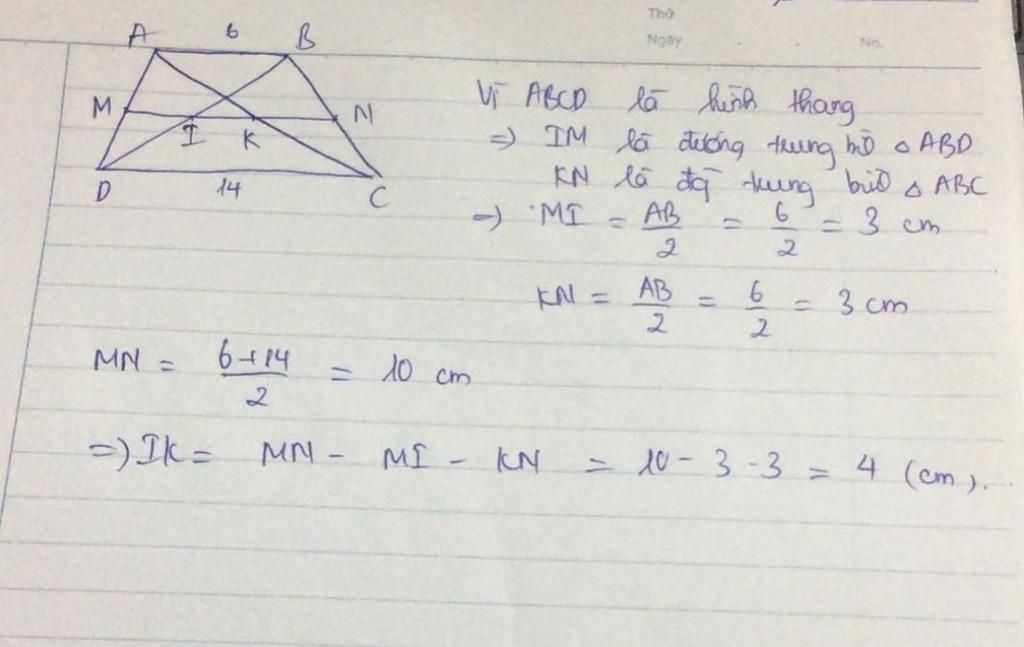 Thứ
Ngày . . No.
A 6 B
M I K N
D 14 C
Vì ABCD là hình thang
=) IM là đường trung bὸ △ ABD
KN là đg̃ trung bὸ △ ABC
=) MI = AB/2 = 6/2 = 3 cm
KN = AB/2 = 6/2 = 3 cm
MN = 6+14/2 = 10 cm
=) IK = MN - MI - KN = 10 - 3 - 3 = 4 (cm).